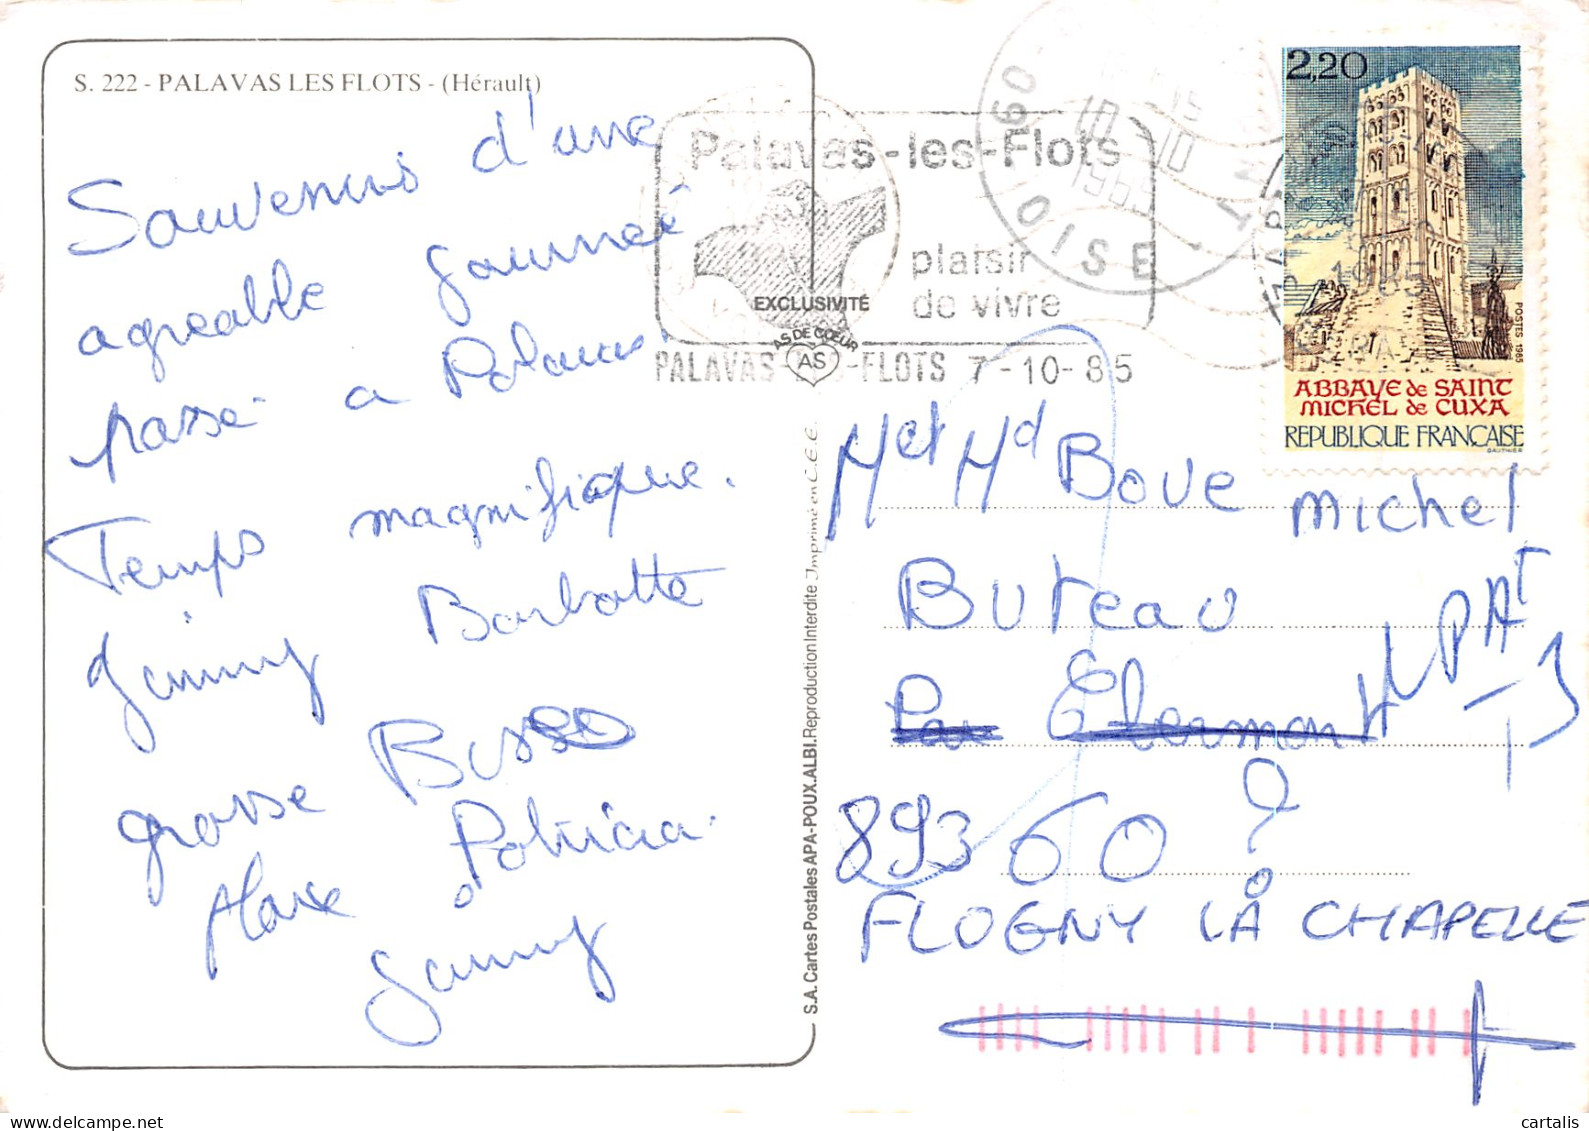 S. 222 - PALAVAS LES FLOTS - (Hérault)
Souvenirs d'une
agréable journeé
passé a Palavas
Temps magnifique.
Jimmy Barbotte
grosse Biss
Patricia.
Jimmy
S.A. Cartes Postales APA-POUX. ALBI. Reproduction Interdite Imprimé en C.E.E.
EXCLUSIVITÉ
AS DE CŒUR
AS
Palavas-les-Flots
plaisir
de vivre
PALAVAS-LES-FLOTS 7-10-85
60
OISE
2,20
POSTES 1985
ABBAYE de SAINT
MICHEL de CUXA
REPUBLIQUE FRANÇAISE
GAUTHIER
M et Md Bove michel
Buteau
Par Clermont
NPAI
89360
FLOGNY LA CHAPELLE
cartalis